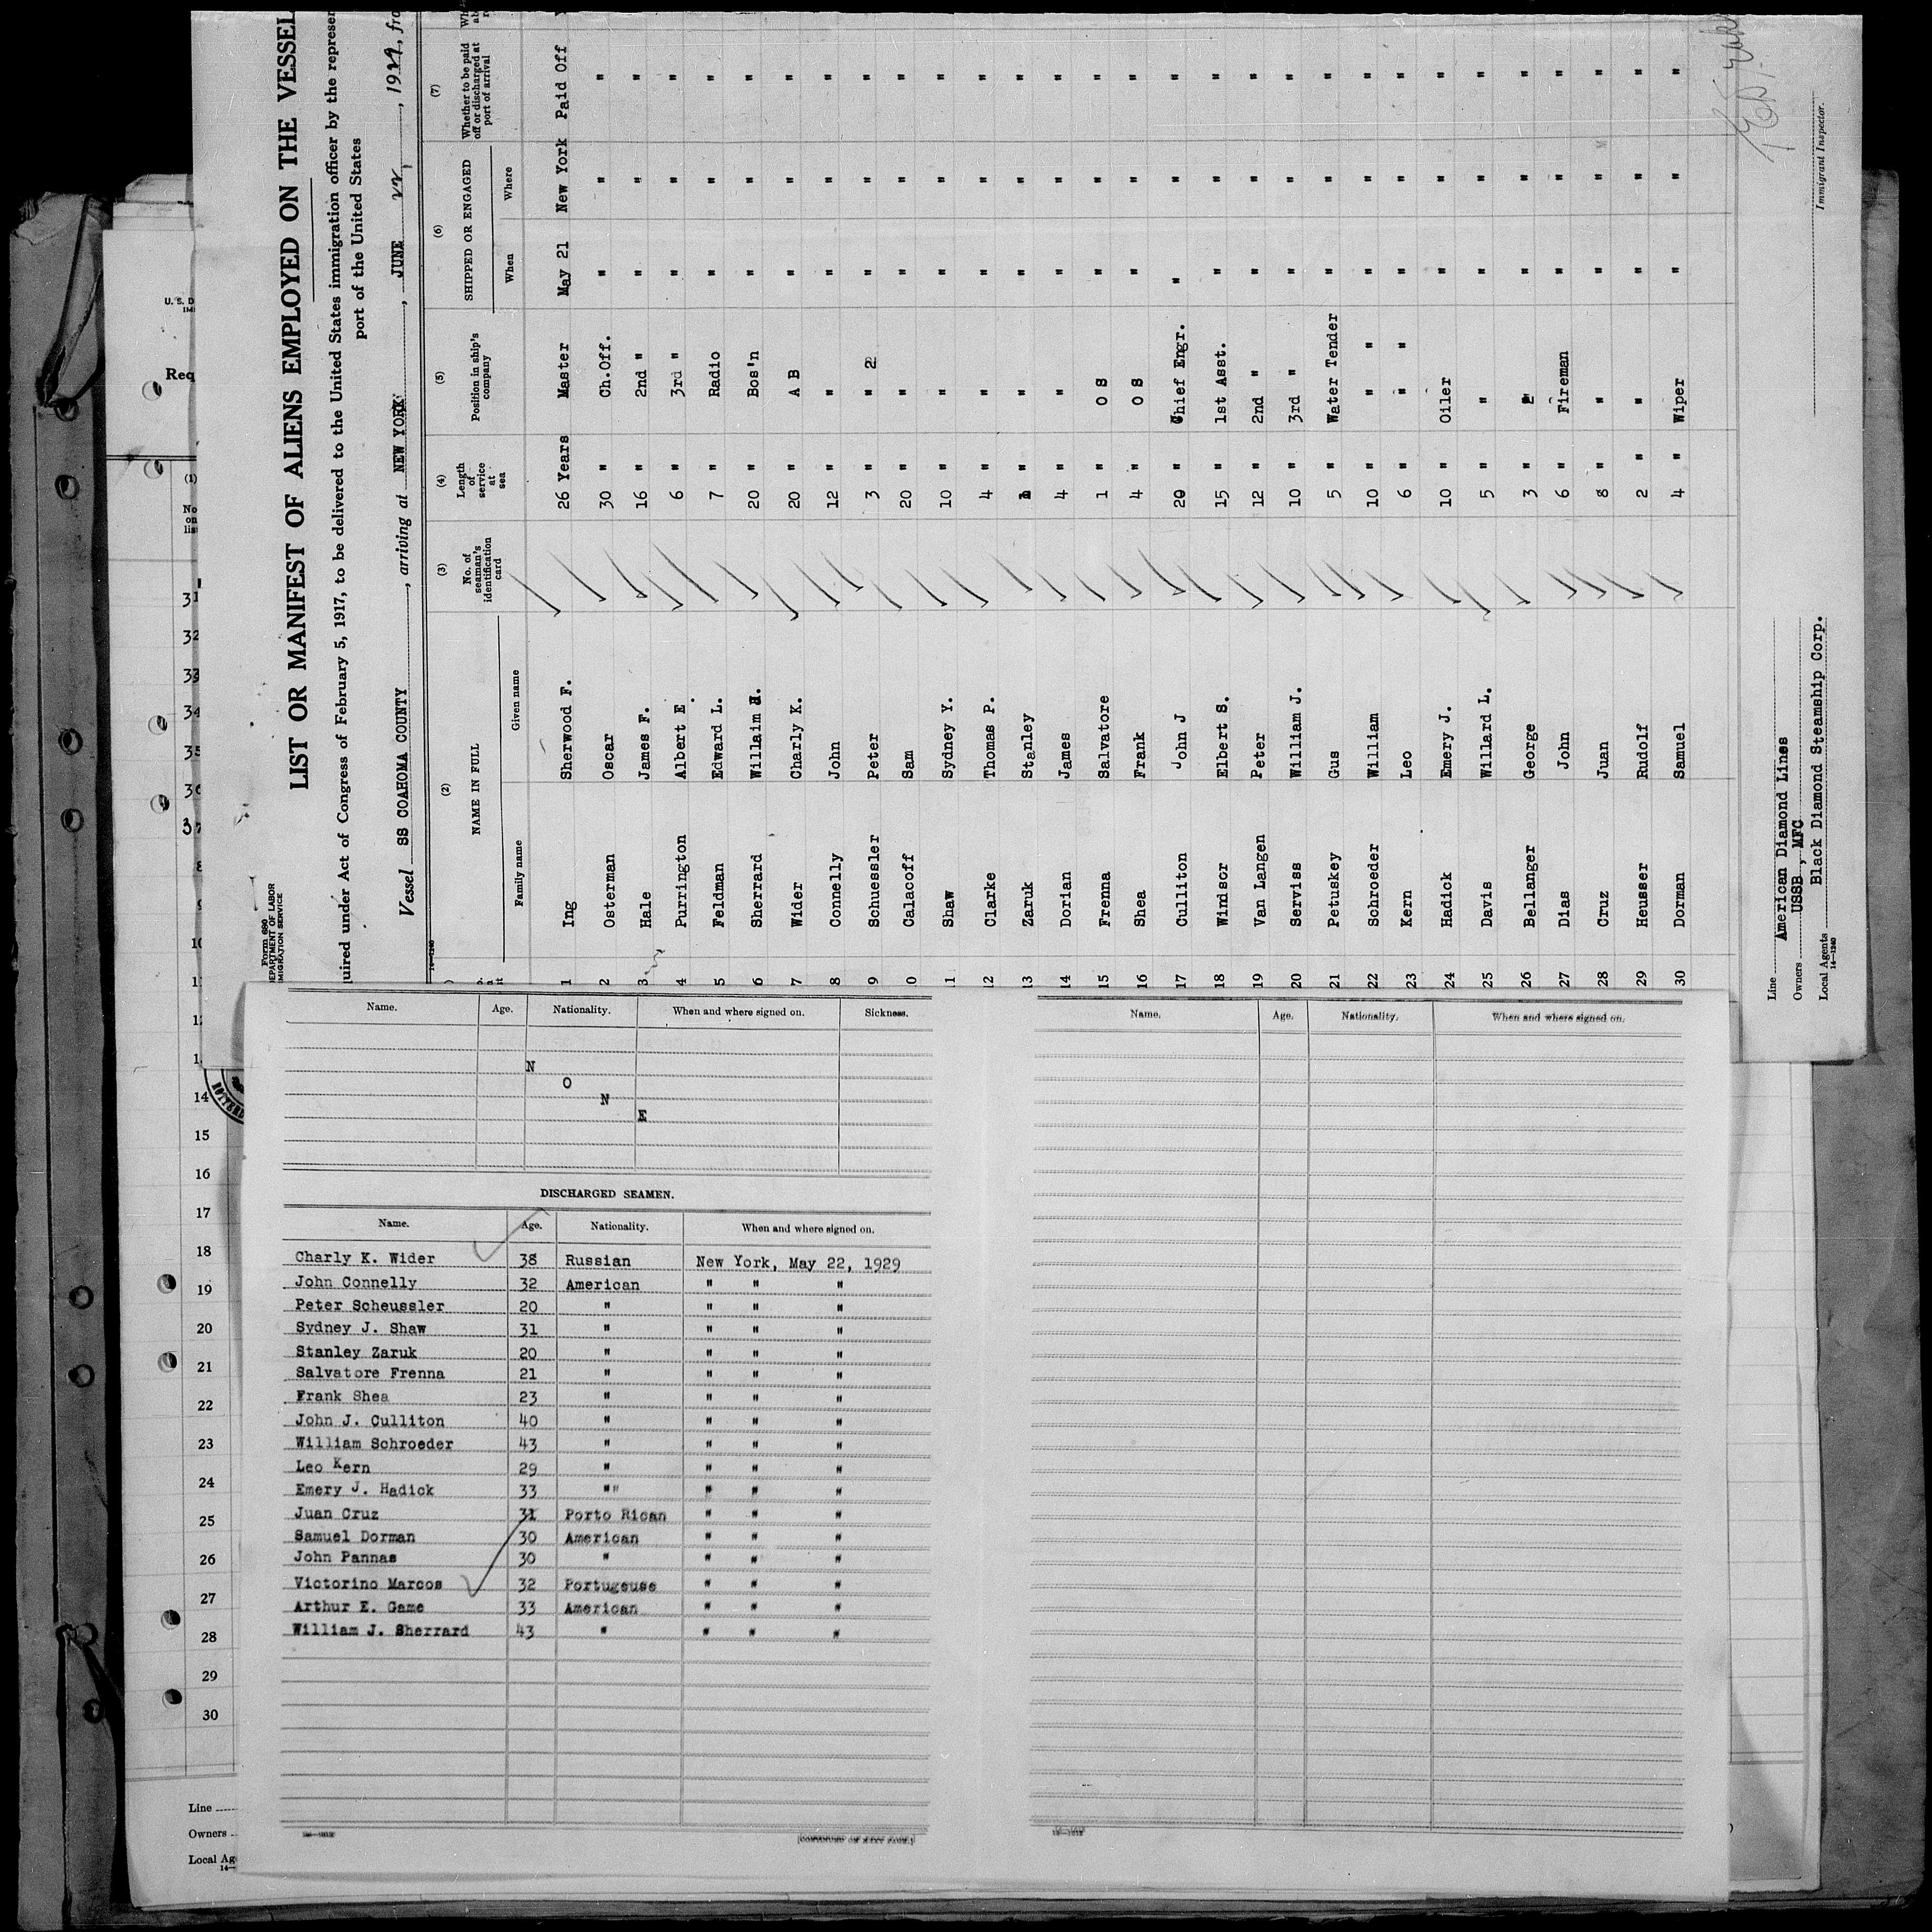 Form 686
LIST OR MANIFEST OF ALIENS EMPLOYED ON THE VESSEL
uired under Act of Congress of February 5, 1917, to be delivered to the United States immigration officer by the represen
port of the United States
Vessel SS COAHOMA COUNTY, arriving at NEW YORK, JUNE
(2) (3) (4) (5) (6) (7)
NAME IN FULL
Family name Given name
No. of seaman's identification card
Length of service at sea
Position in ship's company
SHIPPED OR ENGAGED
When Where
Whether to be paid off or discharged at port of arrival
1 Ing Sherwood F. 26 Years Master May 21 New York Paid Off
2 Osterman Oscar 30 " Ch.Off. " " "
3 Hale James F. 16 " 2nd " " " "
4 Purrington Albert E. 6 " 3rd " " " "
5 Feldman Edward L. 7 " Radio " " "
6 Sherrard Willaim H. 20 " Bos'n " " "
7 Wider Charly K. 20 " A B " " "
8 Connelly John 12 " " " " "
9 Schuessler Peter 3 " " 2 " " "
0 Calacoff Sam 20 " " " " "
1 Shaw Sydney Y. 10 " " " " "
12 Clarke Thomas P. 4 " " " " "
13 Zaruk Stanley " " " " "
14 Dorian James 4 " " " " "
15 Frenna Salvatore 1 " O S " " "
16 Shea Frank 4 " O S " " "
17 Culliton John J 20 " Chief Engr. " " "
18 Windsor Elbert S. 15 " 1st Asst. " " "
19 Van Langen Peter 12 " 2nd " " " "
20 Serviss William J. 10 " 3rd " " " "
21 Petuskey Gus 5 " Water Tender " " "
22 Schroeder William 10 " " " " " "
23 Kern Leo 6 " " " " " "
24 Hadick Emery J. 10 " Oiler " " "
25 Davis Willard L. 5 " " " " "
26 Bellanger George 3 " " " "
27 Dias John 6 " Fireman " " "
28 Cruz Juan 8 " " " " "
29 Heusser Rudolf 2 " " " " "
30 Dorman Samuel 4 " Wiper " " "
Line American Diamond Lines
Owners USSB, MFC
Local Agents Black Diamond Steamship Corp.
14—1240
Immigrant Inspector.
Name. Age. Nationality. When and where signed on. Sickness.
N
O
N
E
DISCHARGED SEAMEN.
Name. Age. Nationality. When and where signed on.
Charly K. Wider 38 Russian New York, May 22, 1929
John Connelly 32 American " " "
Peter Scheussler 20 " " " "
Sydney J. Shaw 31 " " " "
Stanley Zaruk 20 " " " "
Salvatore Frenna 21 " " " "
Frank Shea 23 " " " "
John J. Culliton 40 " " " "
William Schroeder 43 " " " "
Leo Kern 29 " " " "
Emery J. Hadick 33 "" " " "
Juan Cruz 31 Porto Rican " " "
Samuel Dorman 30 American " " "
John Pannas 30 " " " "
Victorino Marcos 32 Portugeuse " " "
Arthur E. Game 33 American " " "
William J. Sherrard 43 " " " "
[CONTINUED ON NEXT PAGE.]
Name. Age. Nationality. When and where signed on.
U. S. D
Req
(1)
31
32
33
34
35
36
37
8
9
10
11
12
14
15
16
17
18
19
20
21
22
23
24
25
26
27
28
29
30
Line
Owners
Local Ag
14—